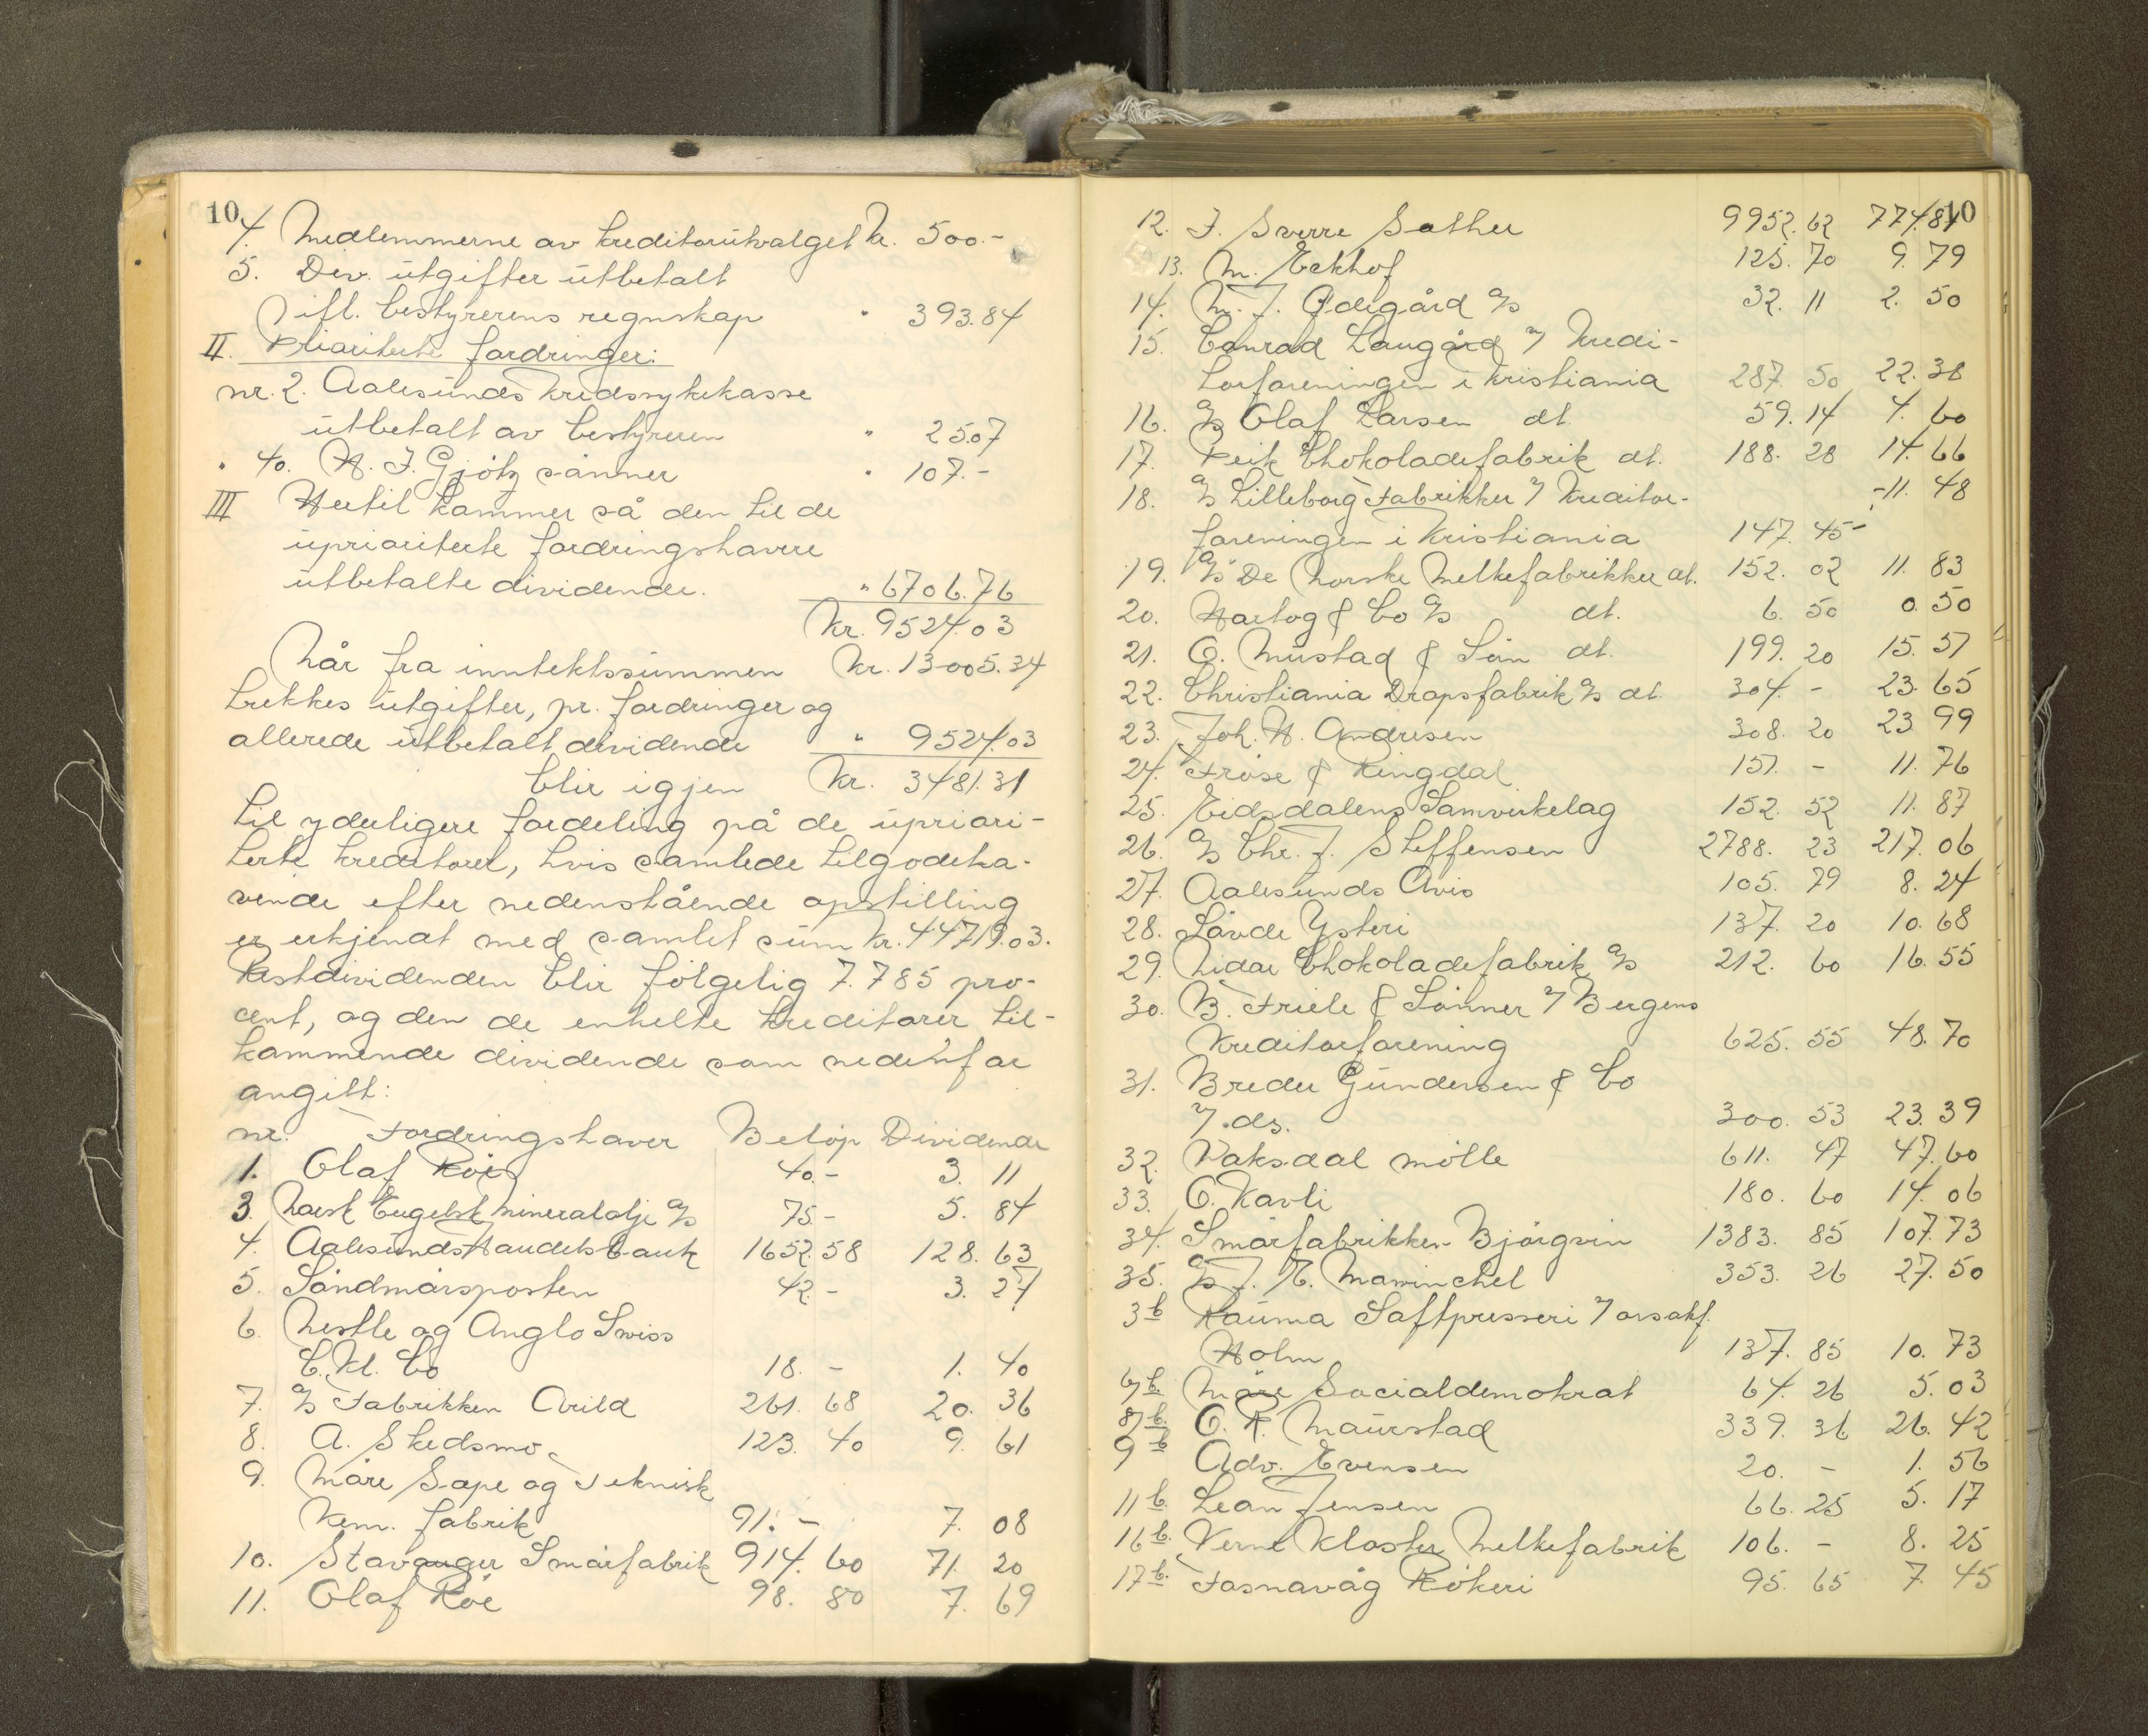 10
4. Medlemmerne av kreditorutvalget kr. 500.-
5. Div. utgifter utbetalt
ifl. bestyrerens regnskap " 393.84
II. Prioriterte fordringer:
nr. 2. Aalesunds kredssykekasse
utbetalt av bestyreren " 25.07
" 40. H. J. Gjörtz sönner " 107.-
III Hertil kommer så den til de
uprioriterte fordringshavere
utbetalte dividende. " 6706.76
Kr. 9524.03
Når fra inntektssummen Kr. 13005.34
trekkes utgifter, pr. fordringer og
allerede utbetalt dividende " 9524.03
blir igjen Kr. 3481.31
til yderligere fordeling på de upriori-
terte kreditorer, hvis samlede tilgodeha-
vende efter nedenstående opstilling
er erkjent med samlet sum kr. 44719.03.
Restdividenden blir fölgelig 7.785 pro-
cent, og den de enkelte kreditorer til-
kommende dividende som nedenfor
angitt:
nr. Fordringshaver Belöp Dividende
1. Olaf Röe 40.- 3. 11
3. Norsk Engelsk Mineralolje A/S 75.- 5. 84
4. Aalesunds Handelsbank 1652.58 128. 63
5. Söndmörsposten 42.- 3. 27
6. Nestle og Anglo Swiss
C. M. Co 18. - 1. 40
7. A/S Fabrikken Arild 261. 68 20. 36
8. A. Skedsmo 123. 40 9. 61
9. Möre Sæpe og Teknisk
Kem. fabrik 91. - 7. 08
10. Stavanger Smörfabrik 914. 60 71. 20
11. Olaf Röe 98. 80 7. 69
10
12. J. Sverre Sæther 9952. 62 774.84
13. M. Eckhof 125. 70 9. 79
14. M. J. Ödegård A/S 32. 11 2. 50
15. Conrad Langård v/ Kredi-
torforeningen i Kristiania 287. 50 22. 38
16. A/S Olaf Larsen dt. 59. 14 4. 60
17. Peik Chokoladefabrik dt. 188. 28 14. 66
18. A/S Lilleborg Fabrikker v/ Kreditor- -11. 48
foreningen i Kristiania 147. 45-
19. A/S De Norske Melkefabrikker dt. 152. 02 11. 83
20. Hartog & Co A/S dt. 6. 50 0. 50
21. O. Mustad & Sön dt. 199. 20 15. 51
22. Christiania Dropsfabrik A/S dt. 304. - 23. 65
23. Joh. H. Andresen 308. 20 23 99
24. Fröise & Ringdal 151. - 11. 76
25. Eidsdalens Samvirkelag 152. 52 11. 87
26. A/S Chr. J. Steffensen 2788. 23 217. 06
27. Aalesunds Avis 105. 79 8. 24
28. Lövde Ysteri 137. 20 10. 68
29. Nidar Chokoladefabrik A/S 212. 60 16. 55
30. B. Friele & Sönner v/ Bergens
Kreditorforening 625. 55 48. 70
31. Breder Gundersen & Co
v/ ds. 300. 53 23. 39
32. Vaksdal mölle 611. 47 47. 60
33. O. Kavli 180. 60 14. 06
34. Smörfabrikken Björgvin 1383. 85 107. 73
35. A/S J. E. Maminchel 353. 26 27. 50
3b Rauma Saftpresseri v/ orsakf.
Holm 137. 85 10. 73
6b. Möre Socialdemokrat 64. 26 5. 03
8b. O. R. Maurstad 339. 36 26. 42
9b Adv. Evensen 20. - 1. 56
11b. Leon Jensen 66. 25 5. 17
16b. Verne Kloster Melkefabrik 106. - 8. 25
17b. Fosnavåg Rökeri 95. 65 7. 45